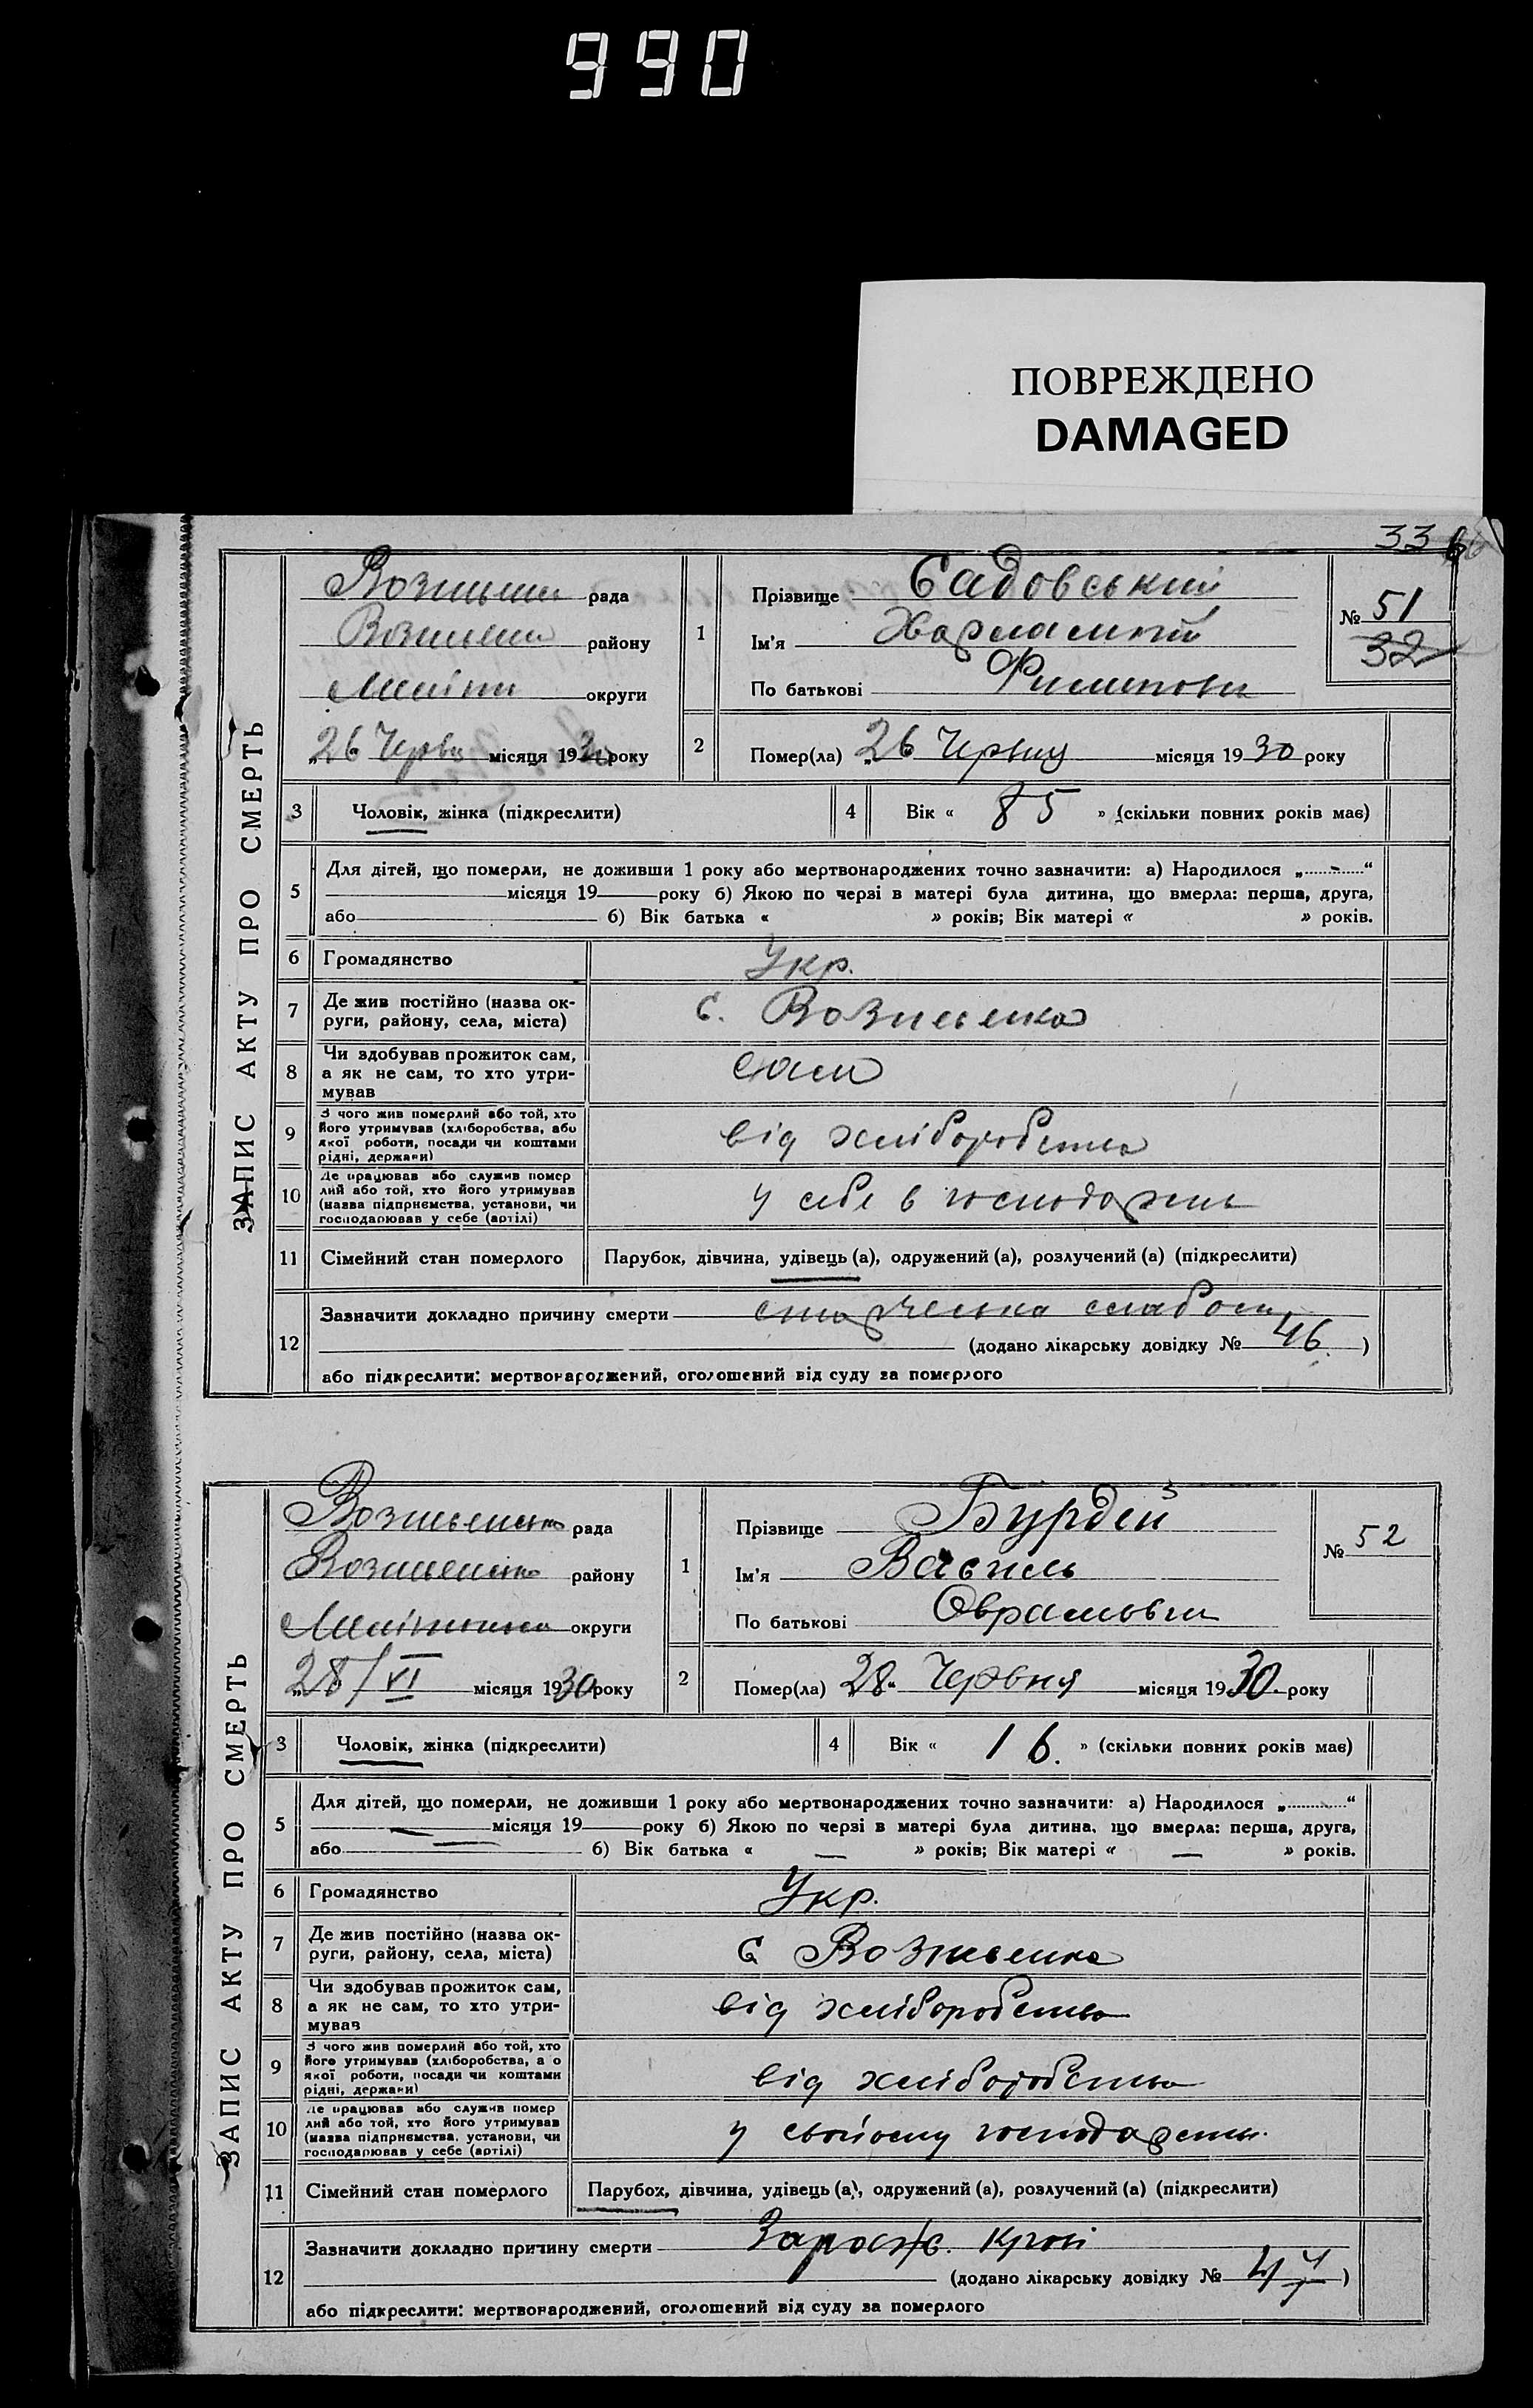 990
ПОВРЕЖДЕНО
DAMAGED
33
ЗАПИС АКТУ ПРО СМЕРТЬ
рада
району
округи
„26“ Червн місяця 1930 року
1
Прізвище Садовський
Ім'я Харлампій
По батькові Филипов
№ 51
32
2
Помер(ла) „26“ Червня місяця 1930 року
3
Чоловік, жінка (підкреслити)
4
Вік « 85 » (скільки повних років має)
5
Для дітей, що померли, не доживши 1 року або мертвонароджених точно зазначити: а) Народилося „............“
місяця 19 року б) Якою по черзі в матері була дитина, що вмерла: перша, друга,
або б) Вік батька « » років; Вік матері « » років.
6
Громадянство Укр.
7
Де жив постійно (назва ок-
руги, району, села, міста)
с. Вознесенка
8
Чи здобував прожиток сам,
а як не сам, то хто утри-
мував
сам
9
З чого жив померлий або той, хто
його утримував (хліборобства, або
якої роботи, посади чи коштами
рідні, держави)
від хліборобства
10
Де працював або служив помер
лий або той, хто його утримував
(назва підприємства, установи, чи
господарював у себе (артілі)
у себе в господарстві
11
Сімейний стан померлого
Парубок, дівчина, удівець (а), одружений (а), розлучений (а) (підкреслити)
12
Зазначити докладно причину смерти старческа слабость
(додано лікарську довідку № 46. )
або підкреслити: мертвонароджений, оголошений від суду за померлого
ЗАПИС АКТУ ПРО СМЕРТЬ
Вознесенсько рада
Вознесенсько району
округи
„28/VI місяця 1930 року
1
Прізвище Бурдей
Ім'я Василь
По батькові Оврамович
№ 52
2
Помер(ла) „28“ Червня місяця 1930. року
3
Чоловік, жінка (підкреслити)
4
Вік « 16. » (скільки повних років має)
5
Для дітей, що померли, не доживши 1 року або мертвонароджених точно зазначити: а) Народилося „............“
— місяця 19 року б) Якою по черзі в матері була дитина, що вмерла: перша, друга,
або — б) Вік батька « — » років; Вік матері « — » років.
6
Громадянство Укр.
7
Де жив постійно (назва ок-
руги, району, села, міста)
с Вознесенка
8
Чи здобував прожиток сам,
а як не сам, то хто утри-
мував
від хліборобства
9
З чого жив померлий або той, хто
його утримував (хліборобства, а о
якої роботи, посади чи коштами
рідні, держави)
від хліборобства
10
Де працював або служив помер
лий або той, хто його утримував
(назва підприємства, установи, чи
господарював у себе (артілі)
у свойому господарстві.
11
Сімейний стан померлого
Парубох, дівчина, удівець (а), одружений (а), розлучений (а) (підкреслити)
12
Зазначити докладно причину смерти Зараж. крові
(додано лікарську довідку № 47 )
або підкреслити: мертвонароджений, оголошений від суду за померлого